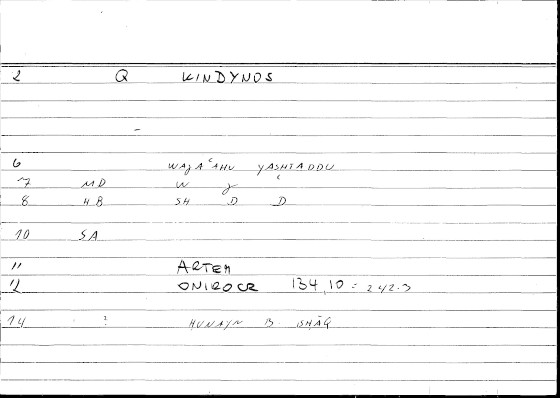 2 Q KINDYNOS
6 WAJAʿAHU YASHTADDU
7 MD W J ʿ
8 HB SH D D
10 SA
11 ARTEM
12 ONIROCR 134,10 = 242.3
14 ? HUNAYN B ISHĀQ